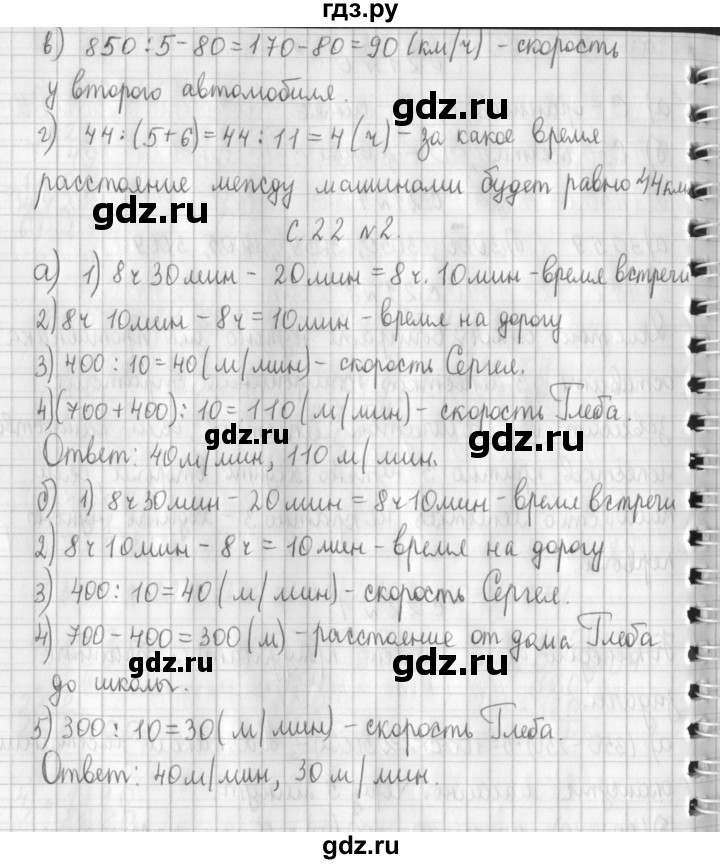 гдз.ру
в) 850 : 5 - 80 = 170 - 80 = 90 (км/ч) - скорость
у второго автомобиля.
gdz.ru
г) 44 : (5+6) = 44 : 11 = 4 (ч) - за какое время
расстояние между машинами будет равно 44 км.
gdz.ru
gdz.ru
С. 22 №2.
а) 1) 8ч 30мин - 20мин = 8ч. 10мин - время встречи
2) 8ч 10мин - 8ч = 10мин - время на дорогу
3) 400 : 10 = 40 (м/мин) - скорость Сергея.
4) (700 + 400) : 10 = 110 (м/мин) - скорость Глеба.
gdz.ru
gdz.ru
Ответ: 40м/мин, 110 м/мин.
б) 1) 8ч 30мин - 20мин = 8ч 10мин - время встречи
2) 8ч 10мин - 8ч = 10мин - время на дорогу
3) 400 : 10 = 40 (м/мин) - скорость Сергея.
4) 700 - 400 = 300 (м) - расстояние от дома Глеба
gdz.ru
gdz.ru
до школы.
5) 300 : 10 = 30 (м/мин) - скорость Глеба.
Ответ: 40м/мин, 30 м/мин.
gdz.ru